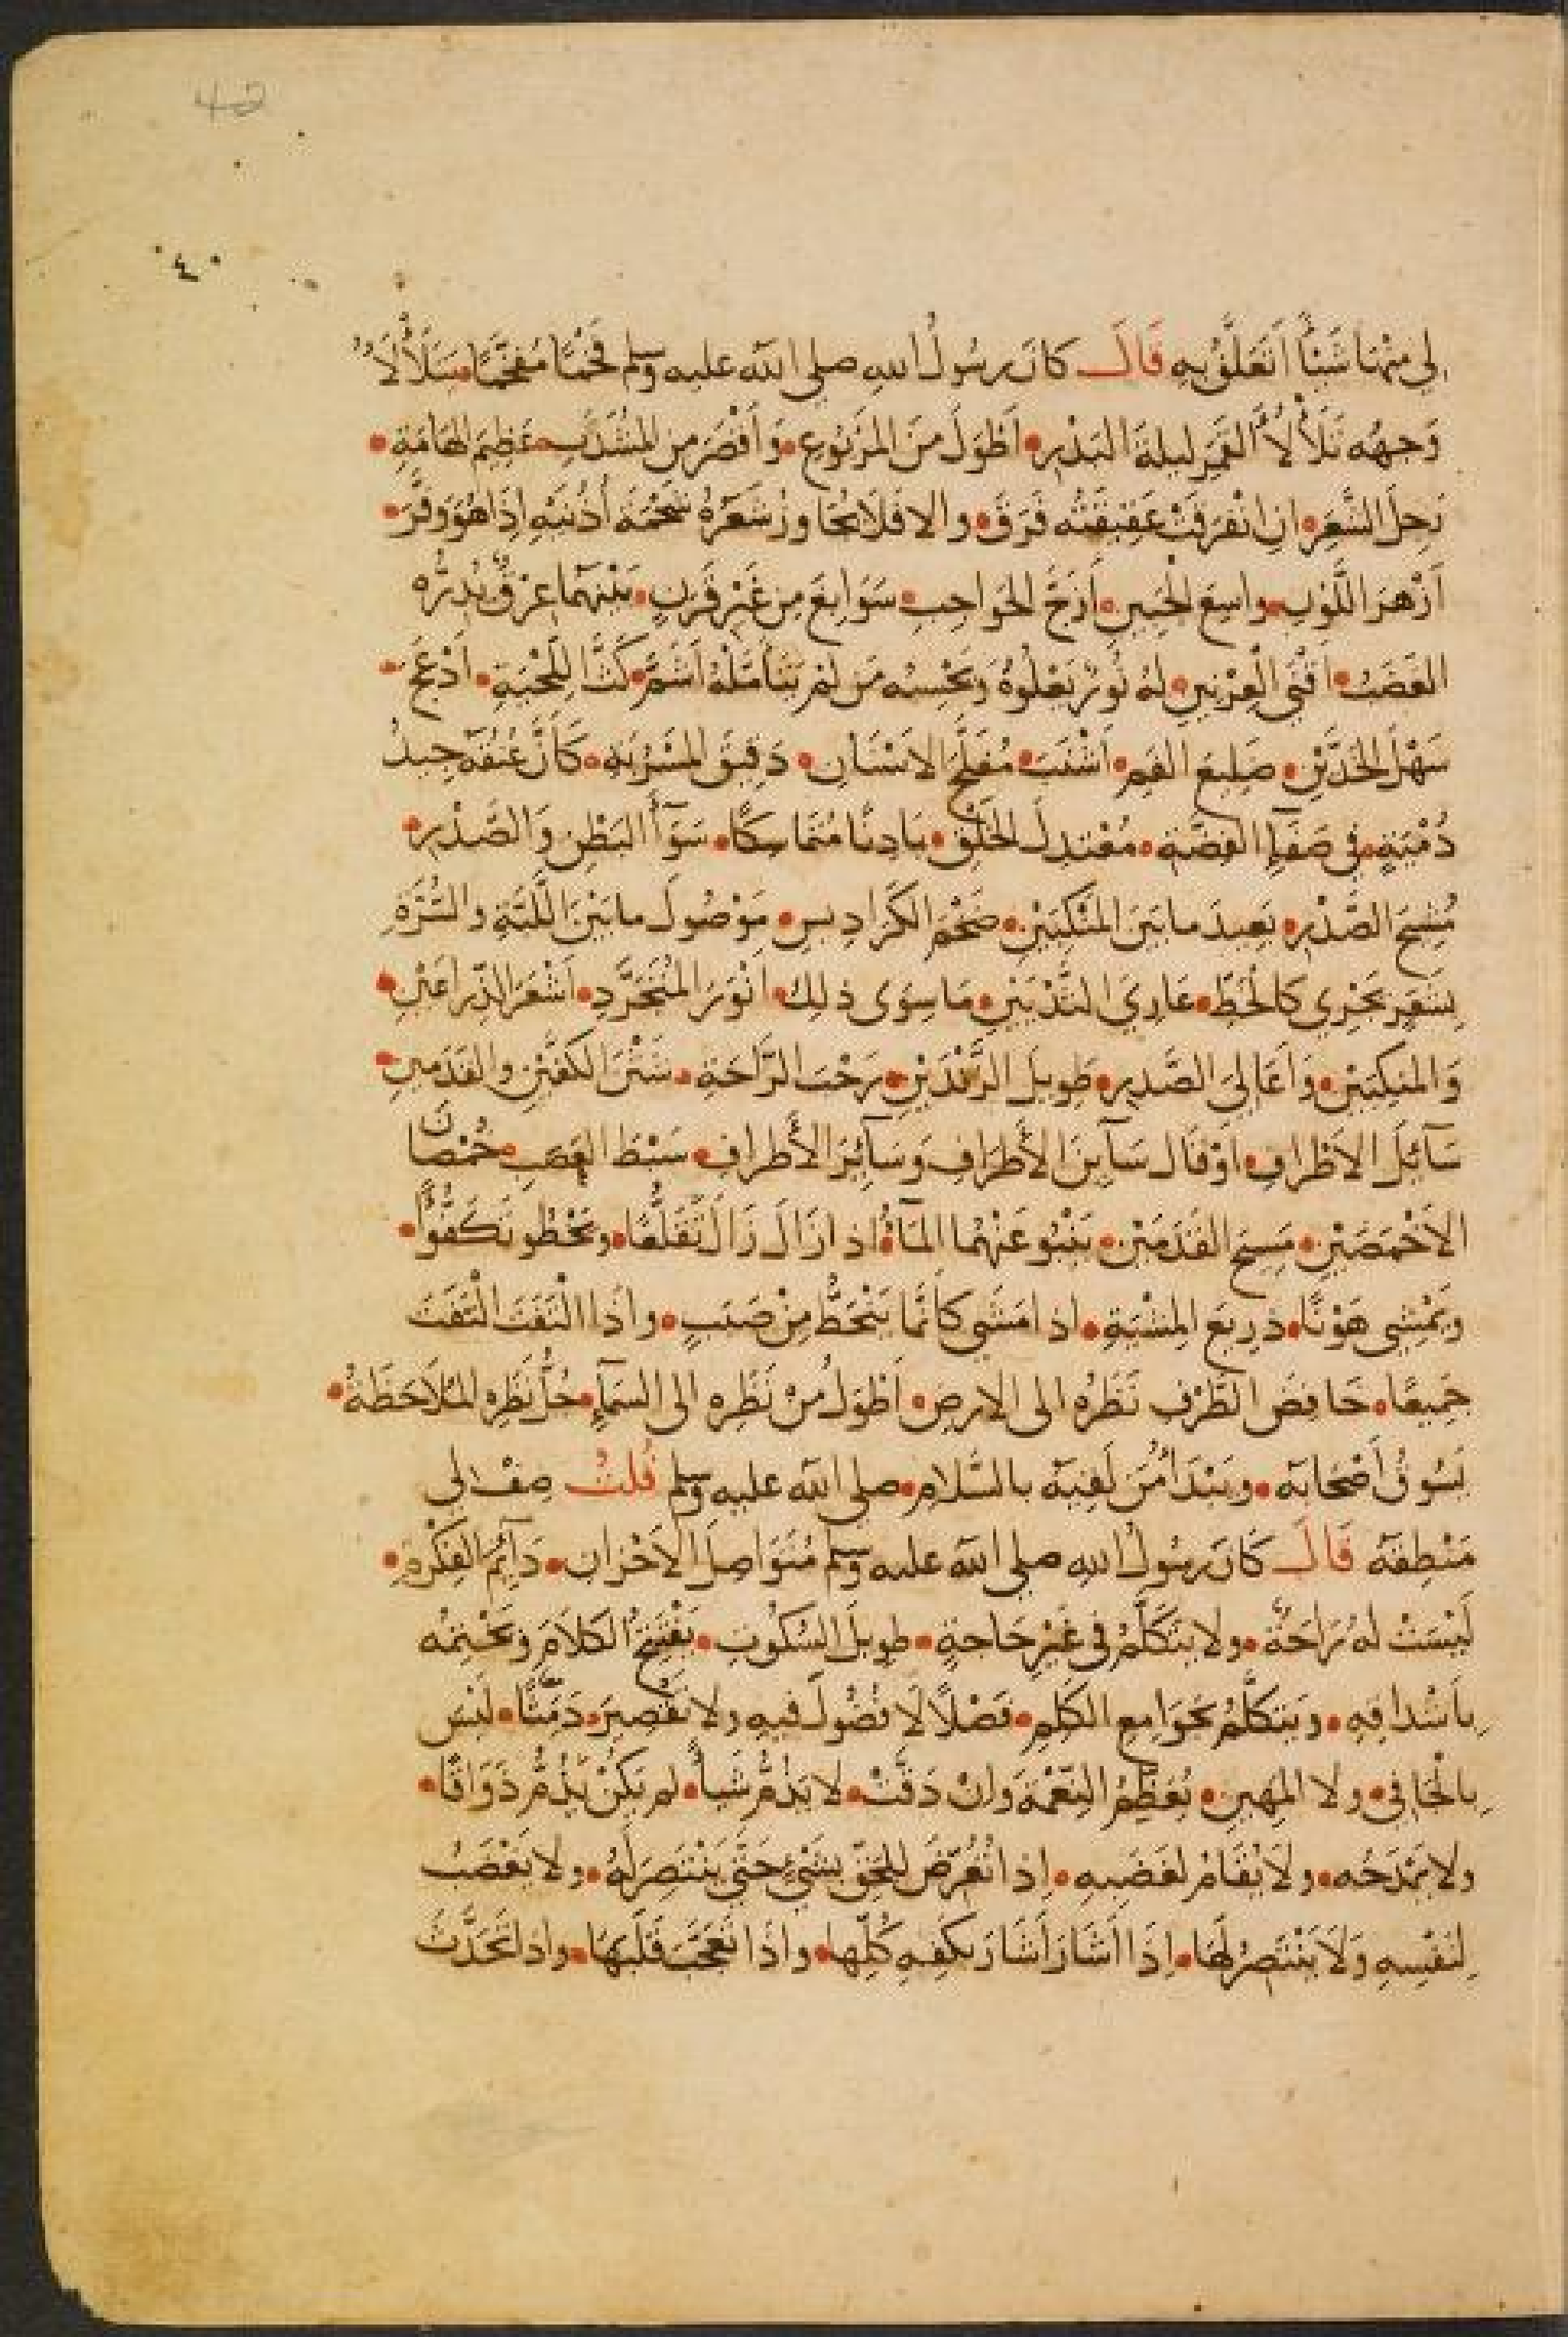 40
٤٠
لِي مِنْهَا شَيْئًا أَتَعَلَّقُ بِهِ قَالَ كَانَ رَسُولُ اللهِ صلى الله عليه وسلم فَخْمًا مُفَخَّمًا • يَتَلَأْلَأُ
وَجهُه تَلَأْلُأَ القَمَرِ ليلةَ البَدْرِ • اَطْوَلَ مِنَ المَرْبُوعِ • وَاَقْصَرَ مِن المُشَذَّبِ • عَظِيمَ الهَامَةِ •
رَجِلَ الشَّعَرِ • ان انْفَرَقَتْ عَقِيقَتُه فَرَقَ • والا فَلَا يُجَاوِزُ شَعَرُهُ شَحْمَةَ أُذُنَيْهِ اِذَا هُوَ وَفَّرَ •
اَزْهَرَ اللَّوْنِ • واسِعَ الْجَبِينِ • أَزَجَّ الحَوَاجِبِ • سَوَابِغَ مِن غَيْرِ قَرَنٍ • بَيْنَهُمَا عِرْقٌ يُدِرُّه
الغَضَبُ • اَقْنَى الْعِرْنِينِ • لهُ نُورٌ يَعْلُوهُ وَيَحْسِبُه مَن لَمْ يَتَأَمَّلْهُ اَشَمَّ • كَثَّ اللِّحْيَةِ • اَدْعَجَ •
سَهْلَ الخَدَّيْنِ • ضَلِيعَ الفَمِ • اَشْنَبَ • مُفَلَّجَ الاَسْنَانِ • دَقِيقَ المَسْرُبَةِ • كَأَنَّ عُنُقَهُ جِيدُ
دُمْيَةٍ • فِي صَفَاءِ الفِضَّةِ • مُعْتَدِلَ الخَلْقِ • بَادِنًا مُتَمَاسِكًا • سَوَآءَ البَطْنِ وَالصَّدْرِ •
مُشِيحَ الصَّدْرِ • بَعِيدَ ما بَيْنَ المَنْكِبَيْنِ • ضَخْمَ الكَرَادِيسِ • مَوْصُولَ ما بَيْنَ اللَّبَّةِ والسُّرَّةِ
بِشَعَرٍ يَجْرِي كَالخَطِّ • عَارِيَ الثَّدْيَيْنِ • مَا سِوَى ذلك • اَنْوَرَ المُتَجَرَّدِ • اَشْعَرَ الذِّرَاعَيْنِ •
وَالمَنْكِبَيْنِ • وَاَعَالِيَ الصَّدرِ • طَوِيلَ الزَّنْدَيْنِ • رَحْبَ الرَّاحَةِ • شَثْنَ الكَفَّيْنِ والقَدَمينِ •
سَآئِلَ الاَطْرافِ • اوْ قَال سَآيِنَ الأَطرَافِ وَسَآئِرَ الأَطرافِ • سَبْطَ العَصَبِ • خُمْصَانَ
الاَخْمَصَيْنِ • مَسِيحَ القَدَمَيْنِ • يَنْبُو عَنْهُما المَآءُ • اذا زَالَ زَالَ تَقَلُّعًا • ويَخْطُو تَكَفُّؤًا •
ويَمْشِي هَوْنًا • ذرِيعَ المِشْيَةِ • اذا مَشَى كأَنَّمَا يَنْحَطُّ مِنْ صَبَبٍ • واِذَا الْتَفَتَ الْتَفَتَ
جَمِيعًا • خَافِضَ الطَّرْفِ نَظَرُه الى الارضِ • اَطْوَلُ مِنْ نَظَرِه الى السَمآءِ • جُلُّ نَظَرِه المُلَاحَظَةُ •
يَسُوقُ أَصْحَابَهُ • ويَبْدَأُ مَن لَقِيَهُ بالسَّلَامِ • صلى الله عليه وسلم قُلتُ صِفْ لي
مَنْطِقَهُ قَالَ كَانَ رسُولُ اللهِ صلى الله عليه وسلم مُتَوَاصِلَ الاَحْزانِ • دَآئِمَ الفِكْرَةِ •
لَيْسَتْ لهُ رَاحَةٌ • ولا يَتَكَلَّمُ فى غَيْرِ حَاجةٍ • طوِيلَ السُّكُوتِ • يَفْتَتِحُ الكَلَامَ وَيَخْتِمُه
بِاَشْدَاقِهِ • ويَتَكَلَّمُ بِجَوَامِعِ الكَلِمِ • فَصْلًا لَا فُضُولَ فيهِ ولا تَقْصِيرَ • دَمِثًا • لَيْسَ
بِالْجَافِي • ولا المَهِينِ • يُعَظِّمُ النِعْمَةَ وَاِنْ دَقَّتْ • لا يَذُمُّ شَيأً • لم يَكُنْ يَذُمُّ ذَوَاقًا •
ولا يَمْدَحُه • ولَا يُقَامُ لغَضَبِهِ • اِذا تُعُرِّضَ لِلحَقِّ بِشَيْءٍ حَتَّى يَنْتَصِرَ لَهُ • ولا يَغْضَبُ
لِنَفْسِهِ وَلَا يَنْتَصِرُ لَهَا • اِذَا أَشَارَ أَشَارَ بِكَفِهِ كُلِّها • واذَا تَعَجَّبَ قَلَبَهَا • واذا تَحَدَّثَ